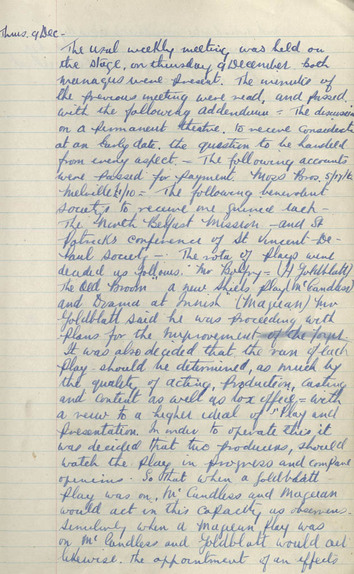 Thurs. 9 Dec -
The usual weekly meeting was held on
the stage, on thursday 9 December both
managers were present. The minutes of
the previous meeting were read, and passed
with the following addendum = The discussion
on a permanent theatre. to receive consideration
at an early date. the question to be handled
from every aspect. - The following accounts
were passed for payment Moss Bros. 5/17/6
Melville = The following benevolent
society's to receive one guinea each -
The North Belfast Mission - and St
Patrick's conference of St Vincent-De-
Paul Society - The rota of plays were
decided as follows. = (H Goldblatt)
The Old Broom - a new Shiels play (McCandless)
and Drama at Inish (Magean) Mr
Goldblatt said he was proceeding with
plans for the improvement of the foyer.
It was also decided that the run of each
play should be determined, as much by
the quality of acting, production, casting
and content as well as box office = with
a view to a higher ideal of "Play and
presentation. In order to operate this it
was decided that two producers, should
watch the play in progress and compare
opinions. So that when a Goldblatt
play was on, McCandless and Magean
would act in this capacity as observers.
Similarly when a Magean play was
on McCandless and Goldblatt would act
likewise. The appointment of an effects